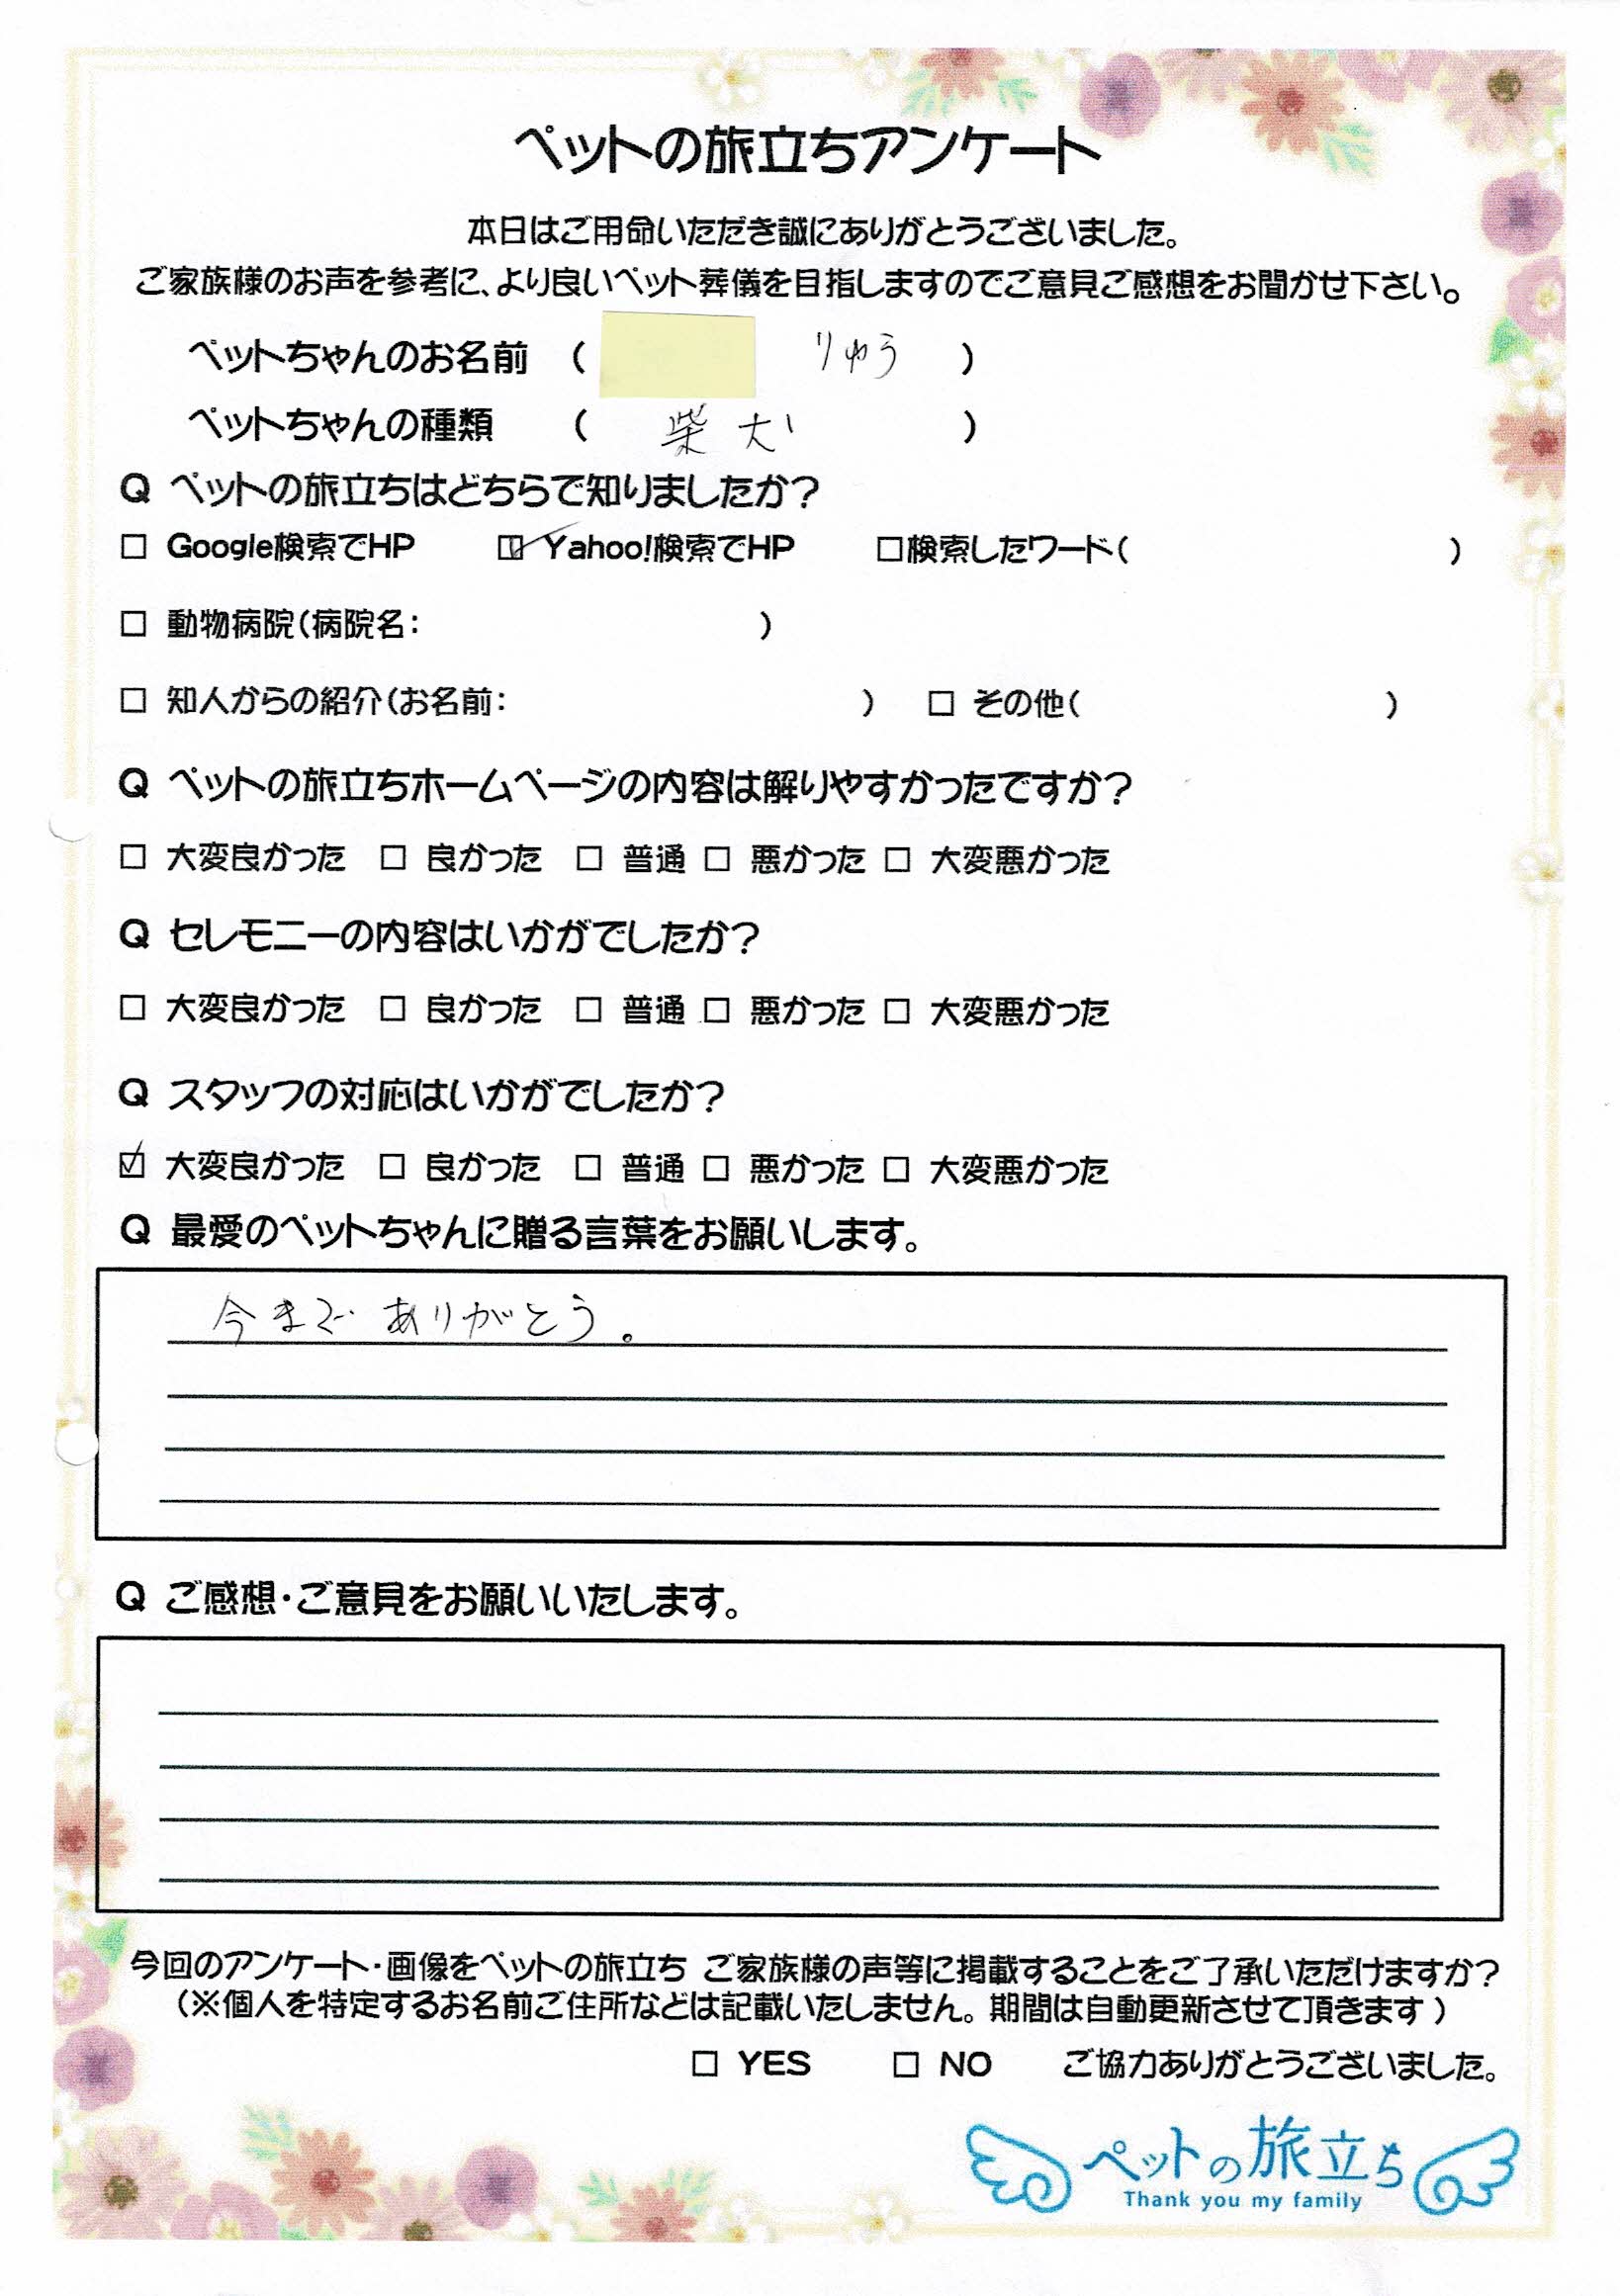 ペットの旅立ちアンケート
本日はご用命いただき誠にありがとうございました。
ご家族様のお声を参考に、より良いペット葬儀を目指しますのでご意見ご感想をお聞かせ下さい。
ペットちゃんのお名前 ( りゅう )
ペットちゃんの種類 ( 柴犬 )
Q ペットの旅立ちはどちらで知りましたか?
□ Google検索でHP ☑ Yahoo!検索でHP □検索したワード( )
□ 動物病院(病院名: )
□ 知人からの紹介(お名前: ) □ その他( )
Q ペットの旅立ちホームページの内容は解りやすかったですか?
□ 大変良かった □ 良かった □ 普通 □ 悪かった □ 大変悪かった
Q セレモニーの内容はいかがでしたか?
□ 大変良かった □ 良かった □ 普通 □ 悪かった □ 大変悪かった
Q スタッフの対応はいかがでしたか?
☑ 大変良かった □ 良かった □ 普通 □ 悪かった □ 大変悪かった
Q 最愛のペットちゃんに贈る言葉をお願いします。
今まで ありがとう。
Q ご感想・ご意見をお願いいたします。
今回のアンケート・画像をペットの旅立ち ご家族様の声等に掲載することをご了承いただけますか?
(※個人を特定するお名前ご住所などは記載いたしません。期間は自動更新させて頂きます)
□ YES □ NO ご協力ありがとうございました。
ペットの旅立ち
Thank you my family